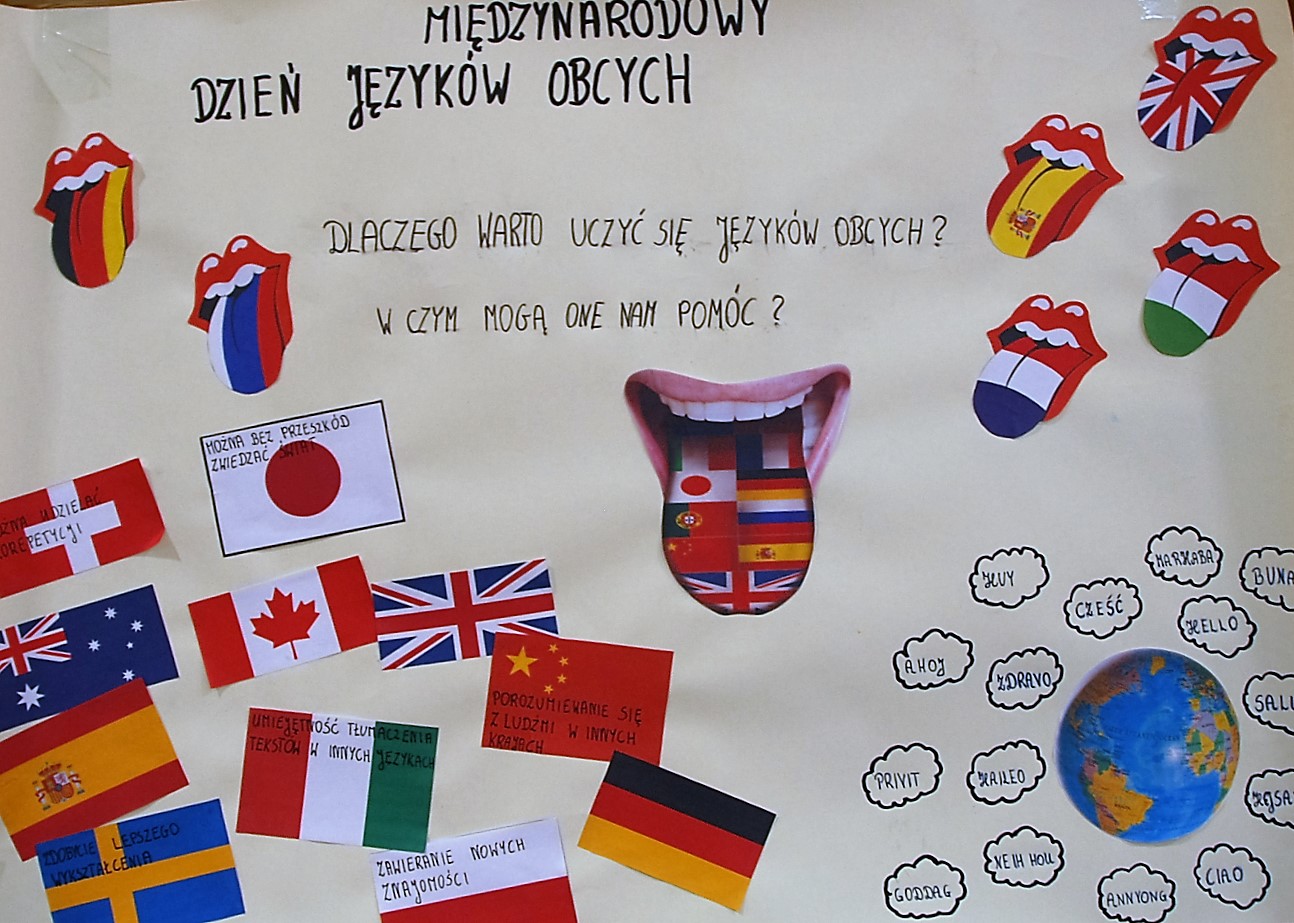 MIĘDZYNARODOWY
DZIEŃ JĘZYKÓW OBCYCH
DLACZEGO WARTO UCZYĆ SIĘ JĘZYKÓW OBCYCH?
W CZYM MOGĄ ONE NAM POMÓC?
MOŻNA BEZ PRZESZKÓD
ZWIEDZAĆ ŚWIAT
UDZIELAĆ
UMIEJĘTNOŚĆ TŁUMACZENIA
TEKSTÓW W INNYCH JĘZYKACH
POROZUMIEWANIE SIĘ
Z LUDŹMI W INNYCH
KRAJACH
ZDOBYCIE LEPSZEGO
WYKSZTAŁCENIA
ZAWIERANIE NOWYCH
ZNAJOMOŚCI
MARHABA
CZEŚĆ
HELLO
AHOJ
ZDRAVO
PRIVIT
HAILEO
NEIH HOU
GODDAG
ANNYONG
CIAO